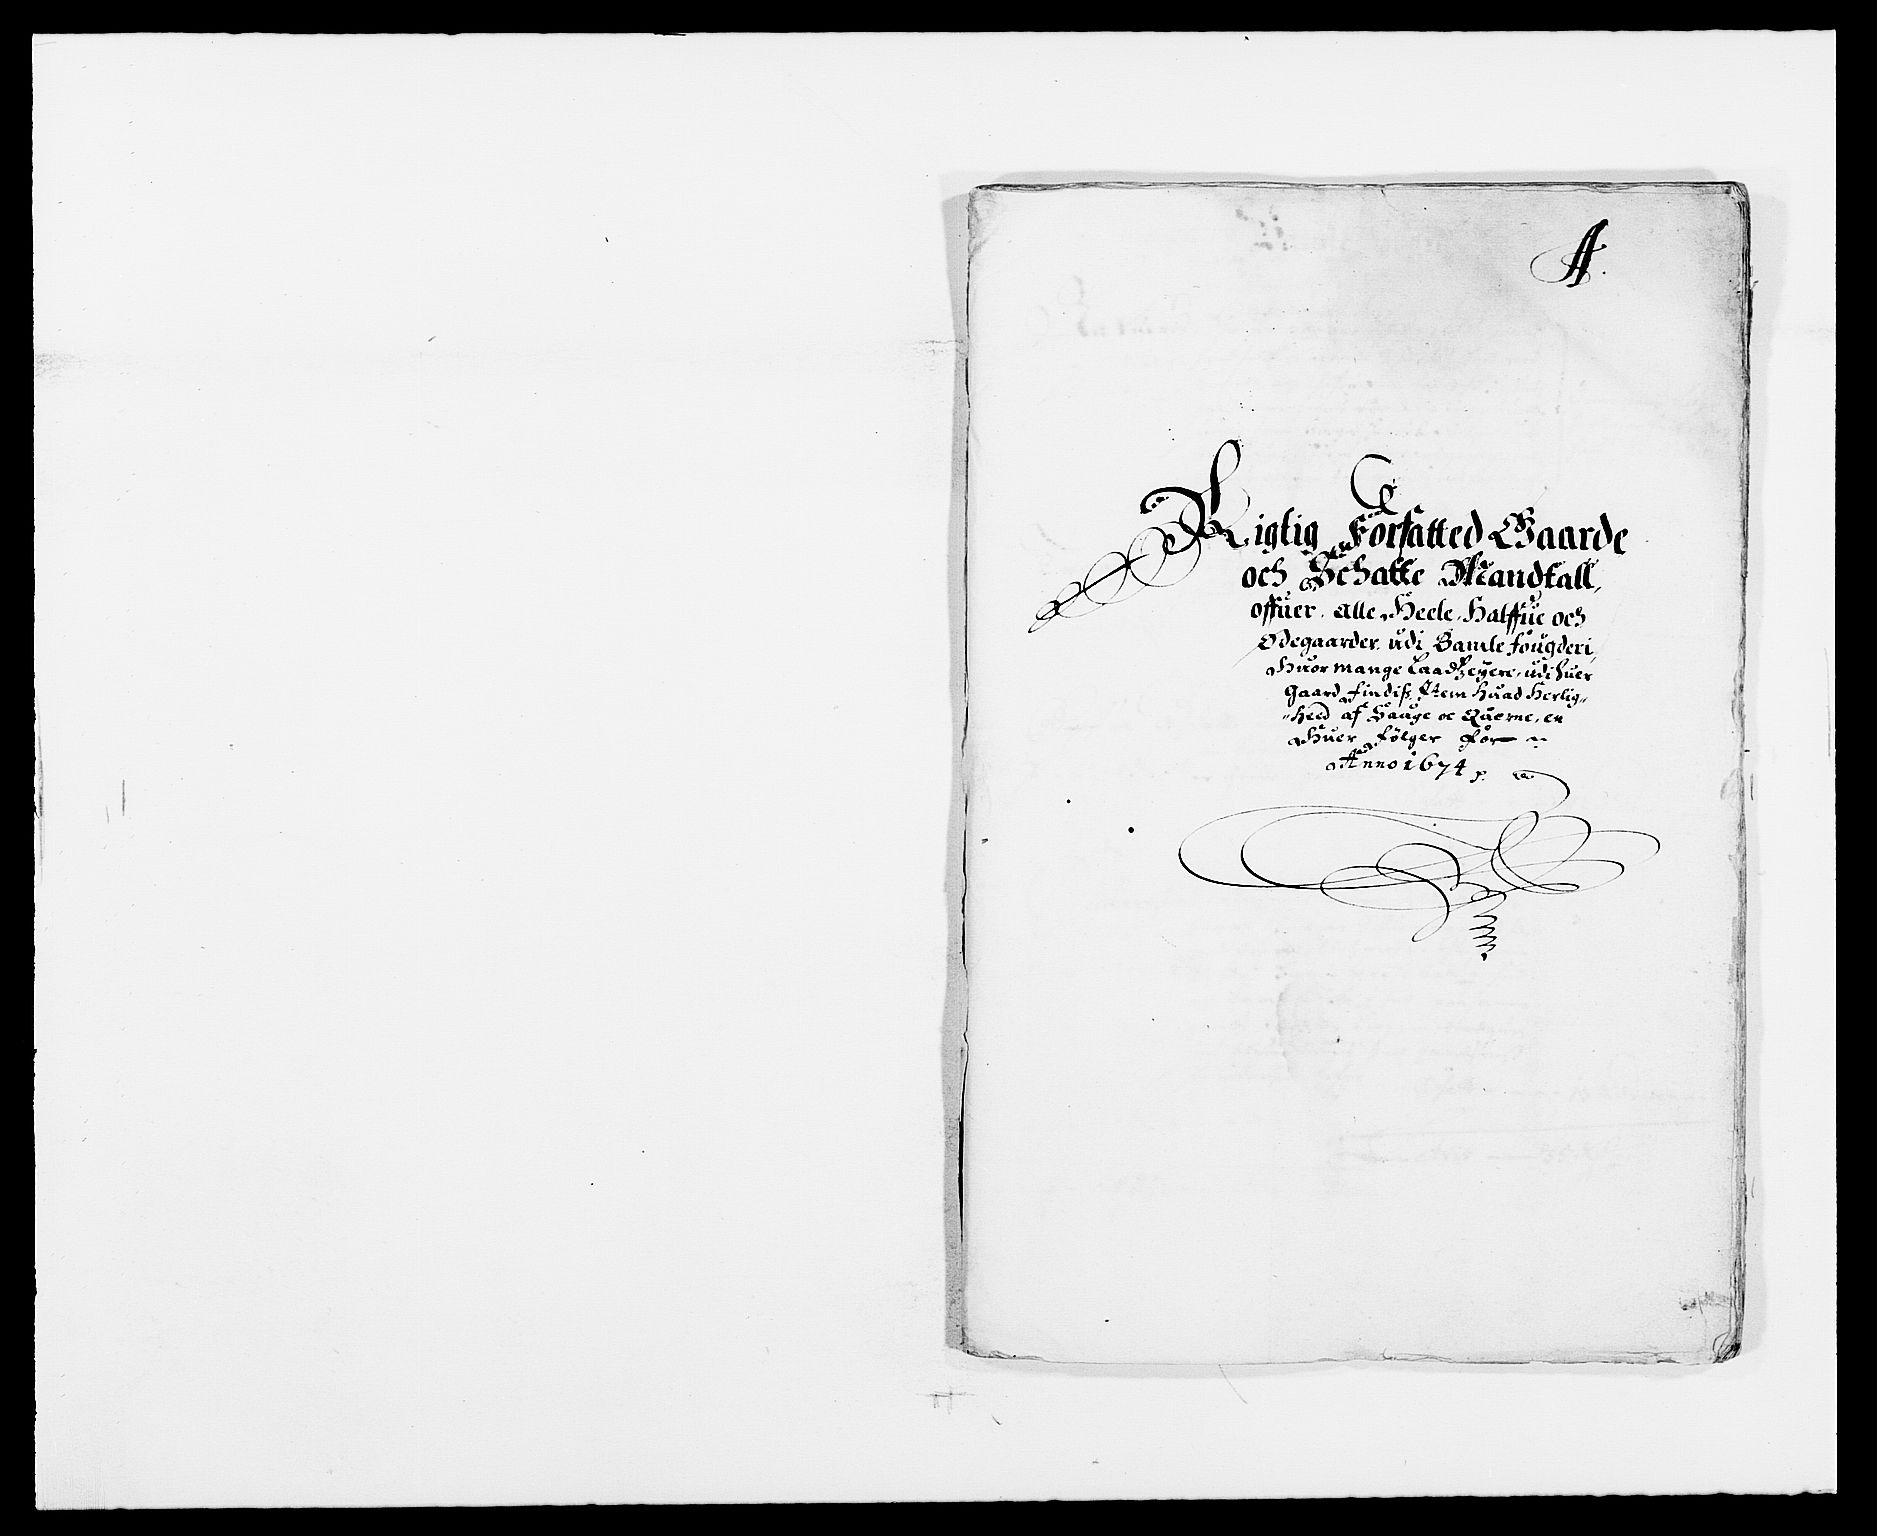 A.
Rigtig Forfatted Gaarde
och Schatte Mandtall,
offuer alle Heele, Halffue och
Ødegaarder udi Bamle fougderi,
Huor mange Laadzeyere, udi huer
Gaard findiß, Item Huad Herlig=
=heed af Sauge oc Querne, en
Huer følger for =
Anno 1674 p.